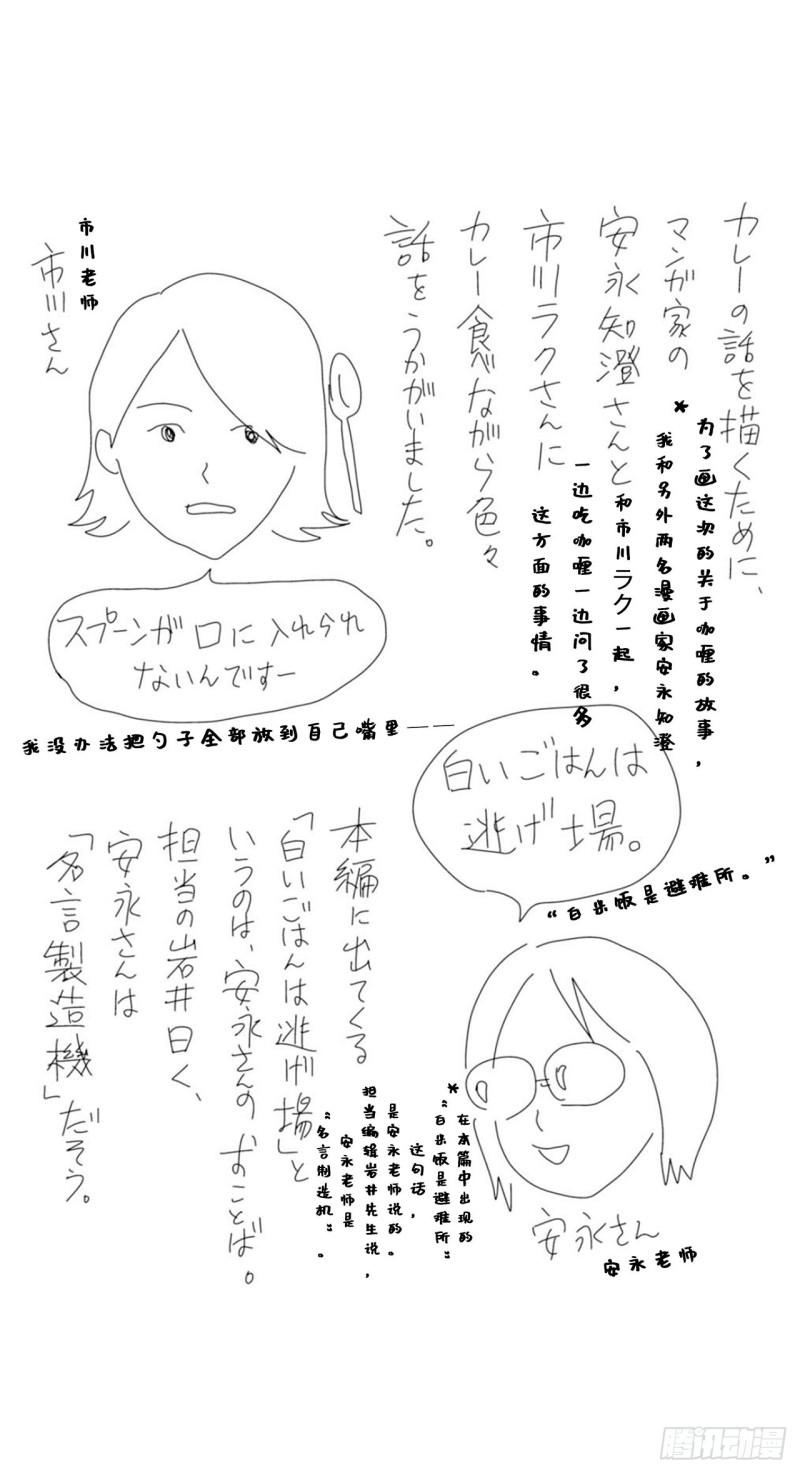 カレーの話を描くために、
マンガ家の
安永知澄さんと
市川ラクさんに
カレー食べながら色々
話をうかがいました。
为了画这次的关于咖喱的故事，
*我和另外两名漫画家安永知澄
和市川ラク一起，
一边吃咖喱一边问了很多
这方面的事情。
市川老师
市川さん
スプーンが口に入れられ
ないんですー
我没办法把勺子全部放到自己嘴里——
白いごはんは
逃げ場。
“白米饭是避难所。”
安永さん
安永老师
本編に出てくる
「白いごはんは逃げ場」と
いうのは、安永さんのおことば。
担当の岩井曰く、
安永さんは
「名言製造機」だそう。
*在本篇中出现的
“白米饭是避难所”
这句话，
是安永老师说的。
担当编辑岩井先生说，
安永老师是
“名言制造机”。
腾讯动漫